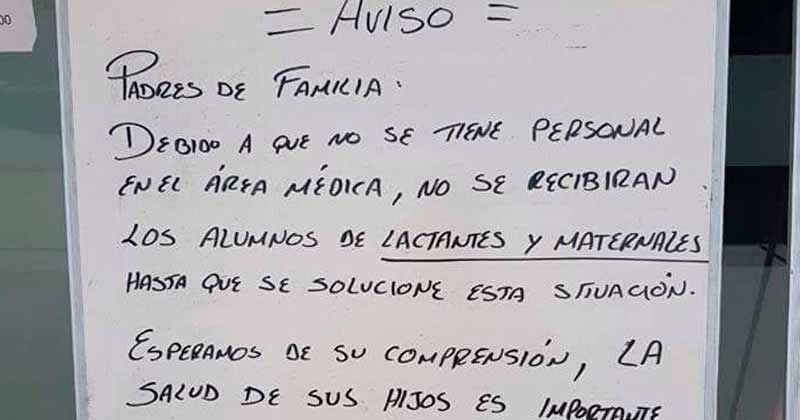 00
= AVISO =
PADRES DE FAMILIA.
DEBIDO A QUE NO SE TIENE PERSONAL
EN EL ÁREA MÉDICA, NO SE RECIBIRAN
LOS ALUMNOS DE LACTANTES Y MATERNALES
HASTA QUE SE SOLUCIONE ESTA SITUACIÓN.
ESPERAMOS DE SU COMPRENSIÓN, LA
SALUD DE SUS HIJOS ES IMPORTANTE